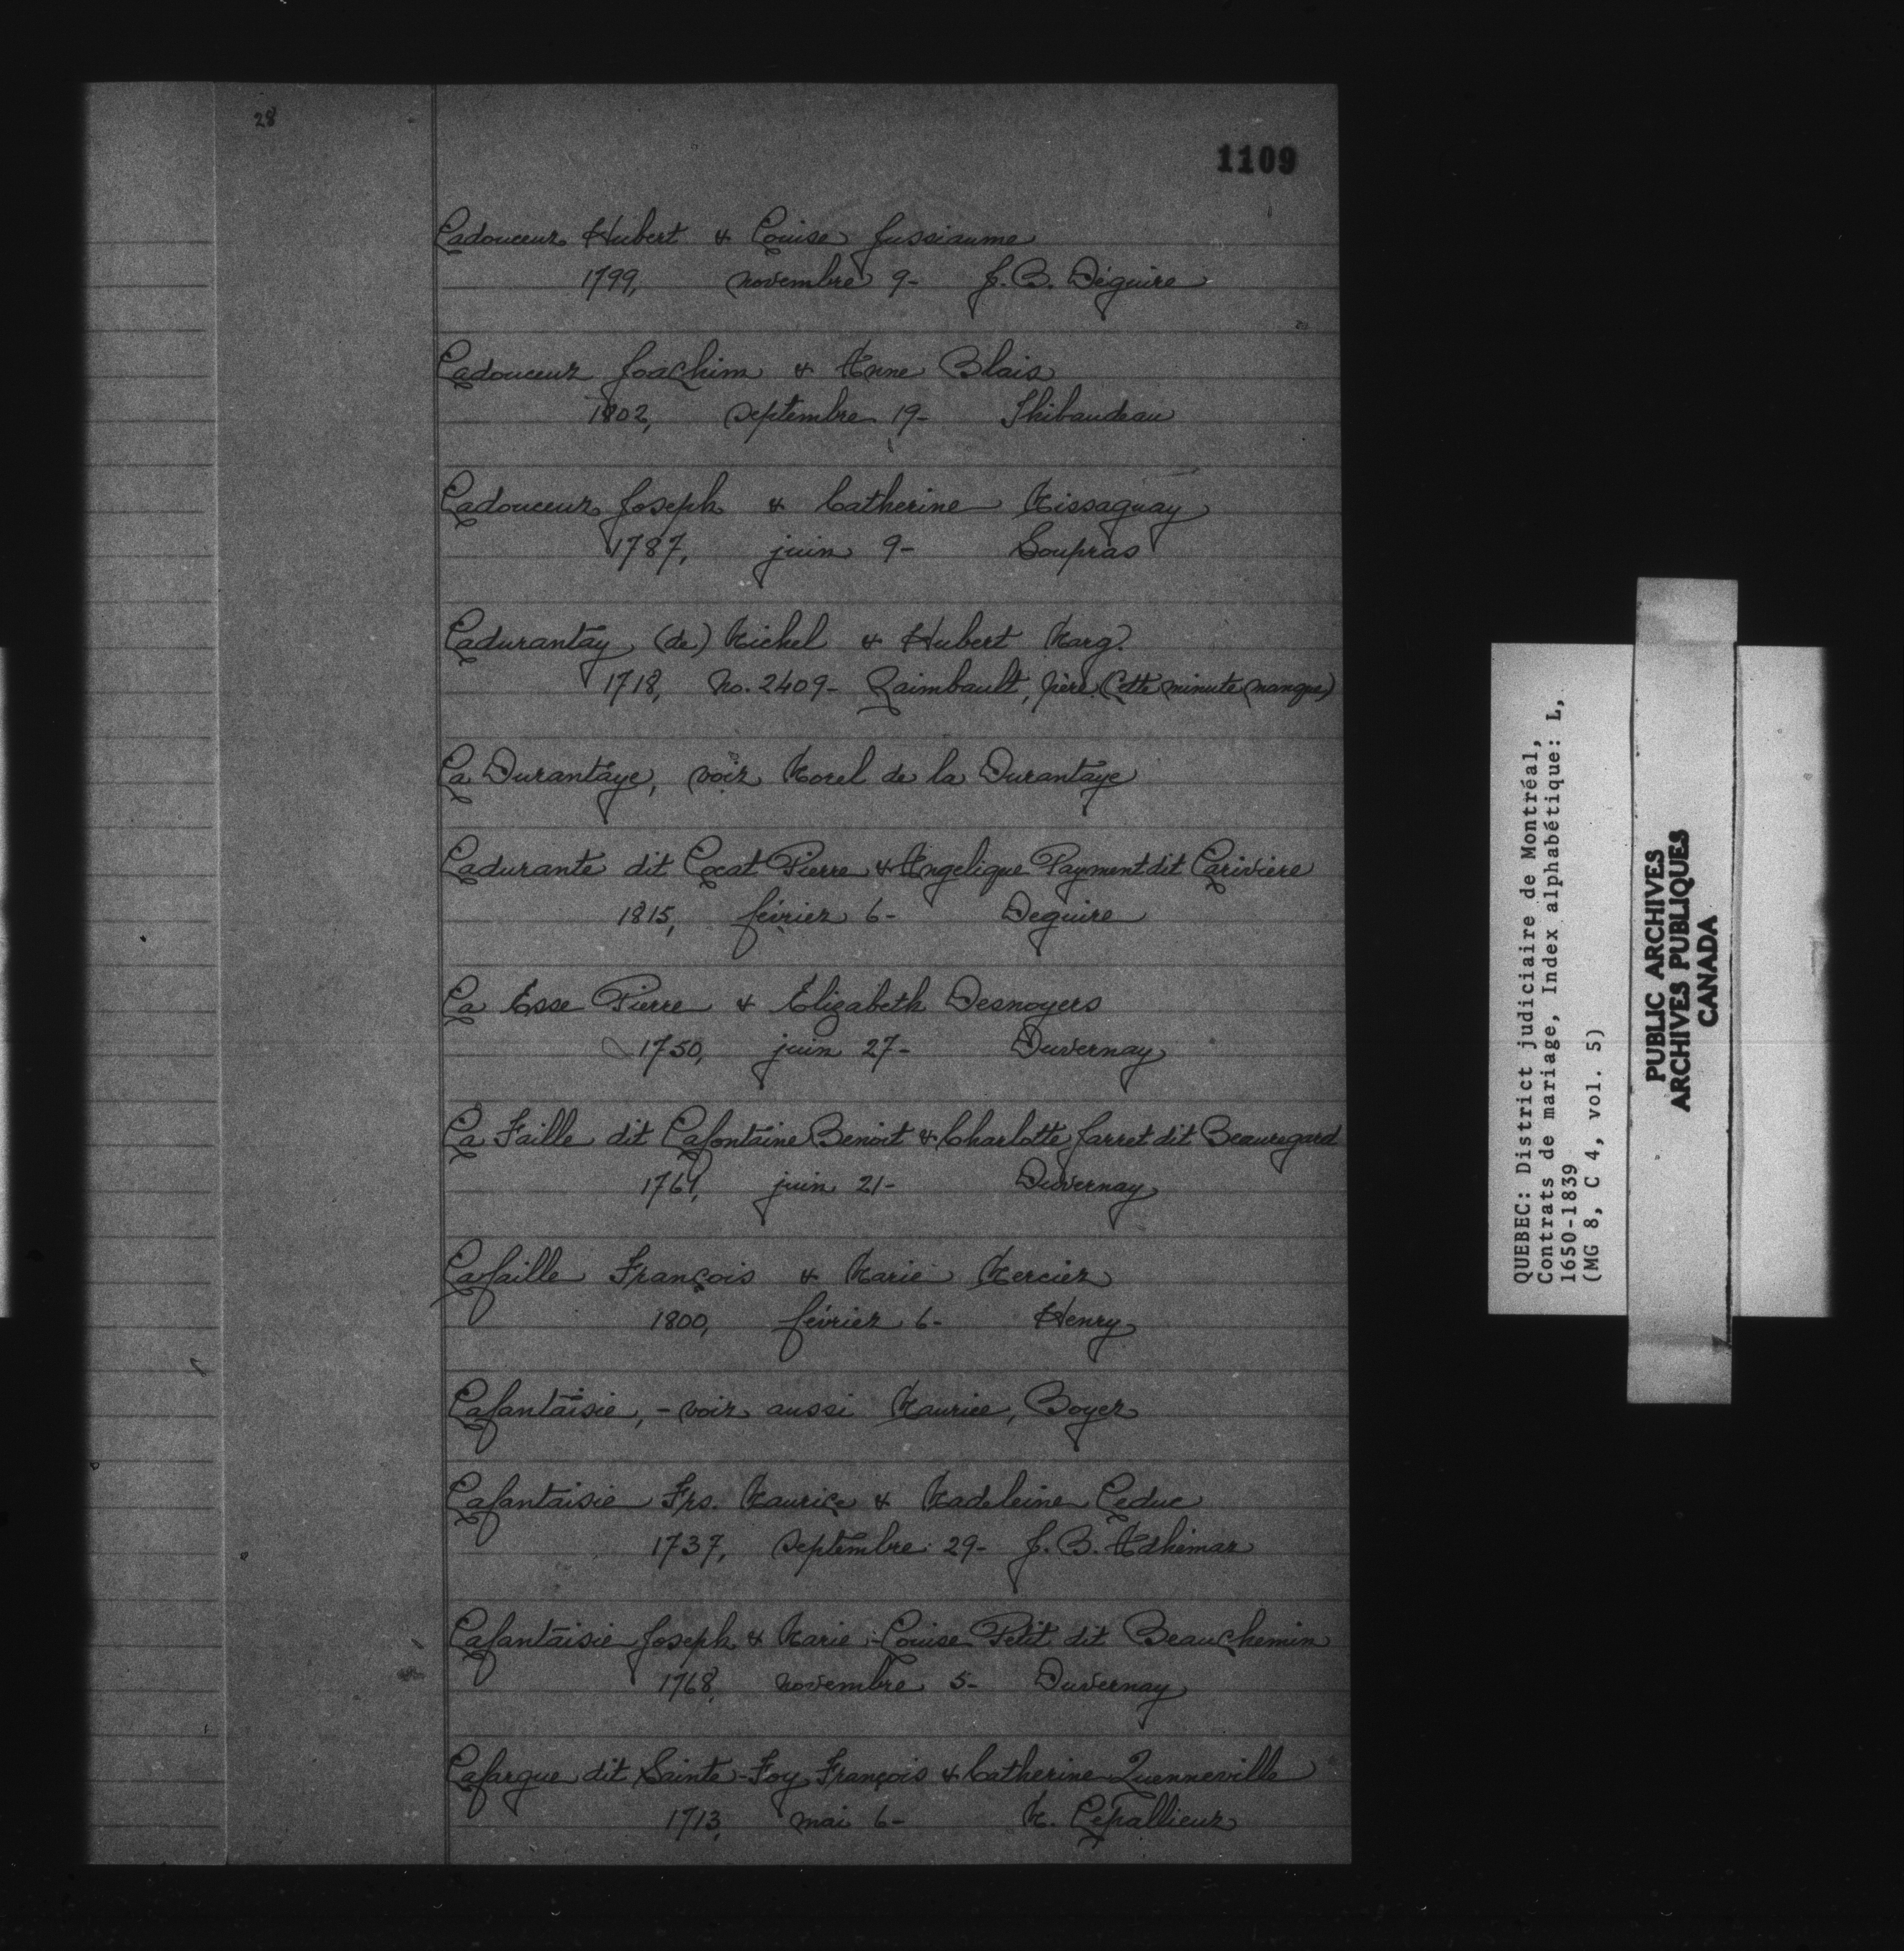 28
1109
Ladouceur Hubert & Louise Jussiaume
1799, novembre 9- J. B. Déguire
Ladouceur Joachim & Anne Blais
1802, septembre 19- Thibaudeau
Ladouceur Joseph & Catherine Missaguay
1787, juin 9- Soupras
Ladurantay (de) Michel & Hubert Marg.
1718, No. 2409- Raimbault, père. (Cette minute manque)
La Durantaye, voir Morel de la Durantaye
Ladurante dit Locat Pierre & Angelique Payment dit Larivière
1815, février 6- Deguire
La Esse Pierre & Elizabeth Desnoyers
1750, juin 27- Duvernay
La Faille dit Lafontaine Benoit & Charlotte Jarret dit Beauregard
1761, juin 21- Duvernay
Lafaille François & Marie Mercier
1800, février 6- Henry
Lafantaisie, - voir aussi Maurice, Boyer
Lafantaisie Frs. Maurice & Madeleine Leduc
1737, septembre 29- J. B. Adhémar
Lafantaisie Joseph & Marie-Louise Petit dit Beauchemin
1768, novembre 5- Duvernay
Lafargue dit Sainte-Foy François & Catherine Quenneville
1713, mai 6- M. Lepallieur
QUEBEC: District judiciaire de Montréal,
Contrats de mariage, Index alphabétique: L,
1650-1839
(MG 8, C 4, vol. 5)
PUBLIC ARCHIVES
ARCHIVES PUBLIQUES
CANADA